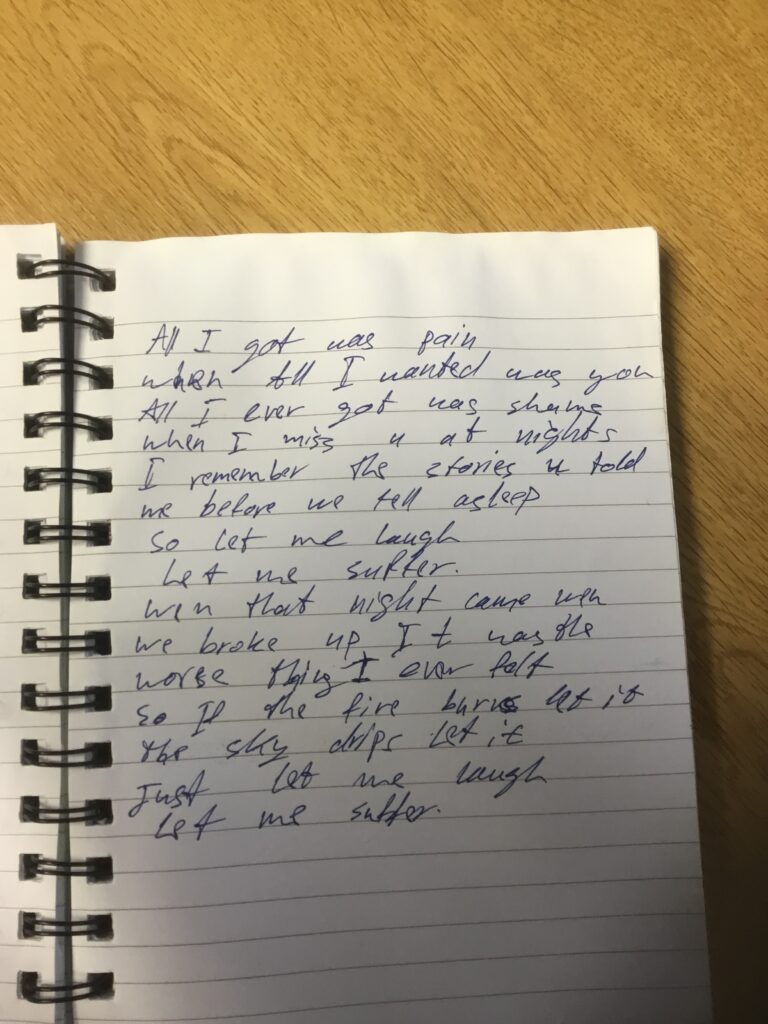 All I got was pain
when all I wanted was you
All I ever got was shame
when I miss u at nights
I remember the stories u told
me before we fell asleep
so let me laugh
Let me suffer.
wen that night came wen
we broke up It was the
worse thing I ever felt
so If the fire burns let it
the sky drips let it
Just let me laugh
Let me suffer.